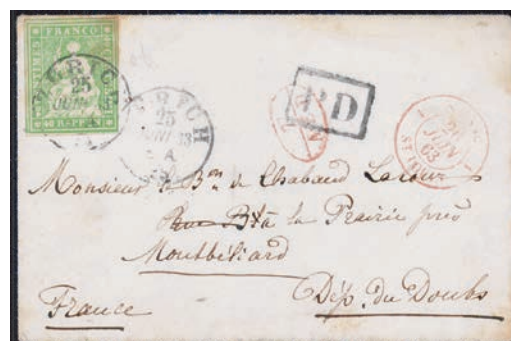 FRANCO
ZÜRICH
25
JUNI 63
ZÜRICH
25
JUNI 63
A
PD
JUIN
63
Monsieur le Bon de Chabaud Latour
Rue B à la Prairie près
Montbéliard
France
Dép. du Doubs